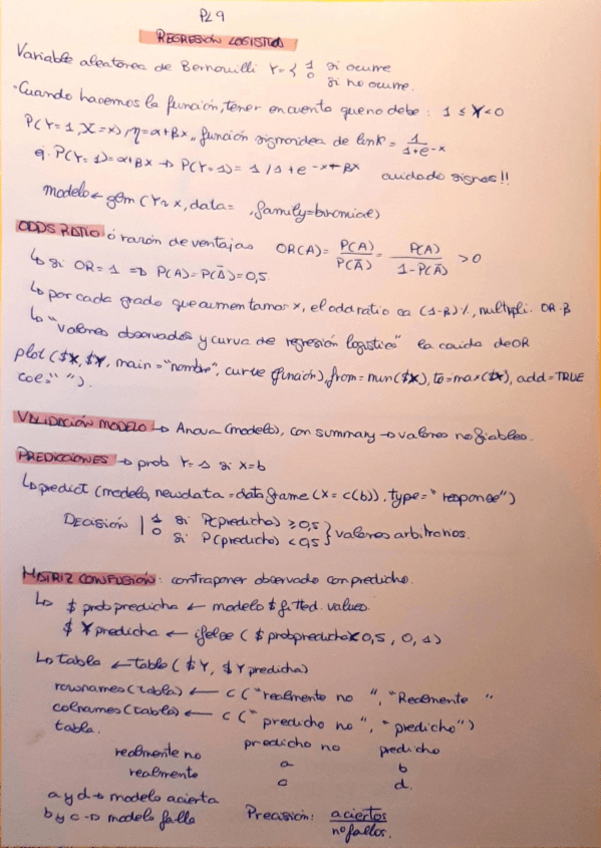 PL 9
REGRESIÓN LOGISTICA
Variable aleatorea de Bernouilli Y = { 1 si ocurre
0 si no ocurre.
· Cuando hacemos la función, tener en cuenta que no debe : 1 ≤ Y < 0
P(Y=1, X=x), η=α+βx, función sigmoidea de link = 1/1+e^-x
ej. P(Y=1)=α+βx → P(Y=1) = 1/1+e^-x+βx cuidado signos!!
modelo ← glm (Y~x, data= , family=binomial)
ODDS RATIO ó razón de ventajas OR(A) = P(A)/P(Ā) = P(A)/1-P(Ā) > 0
↳ si OR=1 ⇒ P(A)=P(Ā)=0,5
↳ por cada grado que aumentamos x, el odd ratio ca (1-β)%, multipli. OR·β
↳ "valores observados y curva de regresión logistica" la caida de OR
plot ($X, $Y, main="nombre", curve (función), from=min($X), to=max($X), add=TRUE
col=" ").
VALIDACIÓN MODELO → Anova (modelo), con summary → valores no fiables.
PREDICCIONES → prob Y=1 si x=b
↳ predict (modelo, newdata=data.frame (x=c(b)), type="response")
DECISIÓN | 1 si P(predicha) ≥ 0,5 } valores arbitrarios.
0 si P(predicha) < 0,5
MATRIZ CONFUSIÓN: contraponer observado con predicho.
↳ $ prob predicha ← modelo $ fitted. values
$ Y predicha ← ifelse ( $ probpredicha < 0,5, 0, 1)
↳ tabla ← table ( $ Y, $ Y predicha)
rownames (tabla) ← c ("realmente no ", "Realmente "
colnames (tabla) ← c (" predicho no ", " predicho")
tabla.
predicho no predicho
realmente no a b
realmente c d.
a y d → modelo acierta
b y c → modelo falla
Precisión: aciertos/no fallos.